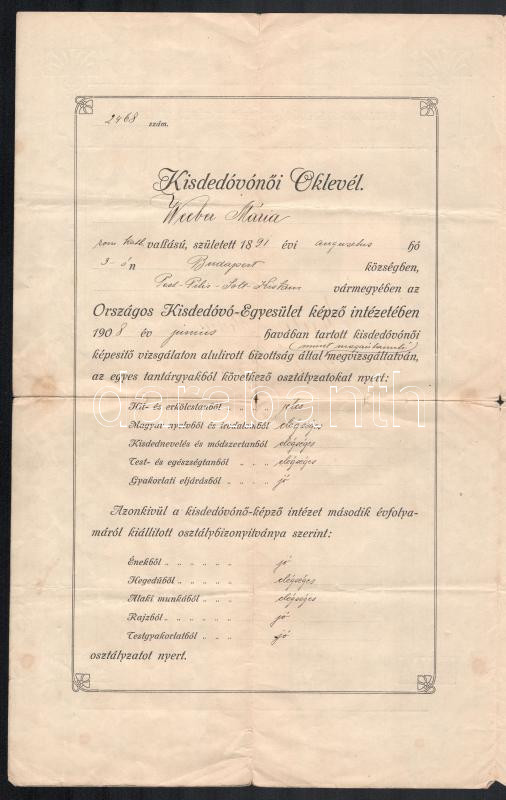 2468 szám.
Kisdedóvónői Oklevél.
Mária
rom. kath. vallású, született 1891 évi augusztus hó
3-án Budapest községben,
Pest-Pilis-Solt-Kiskun vármegyében az
Országos Kisdedóvó-Egyesület képző intézetében
1908 év június havában tartott kisdedóvónői
(mint magántanuló)
képesítő vizsgálaton alulirott bizottság által megvizsgáltatván,
az egyes tantárgyakból következő osztályzatokat nyert:
Hit- és erkölcstanból . . . jeles
Magyar nyelvből és irodalomból elégséges
Kisdednevelés és módszertanból elégséges
Test- és egészségtanból . . . elégséges
Gyakorlati eljárásból . . . jó
Azonkivül a kisdedóvónő-képző intézet második évfolya-
máról kiállitott osztálybizonyitványa szerint:
Énekből . . . . . . . jó
Hegedűből . . . . . . elégséges
Alaki munkából . . . elégséges
Rajzból . . . . . . . jó
Testgyakorlatból . . . jó
osztályzatot nyert.
darabanth